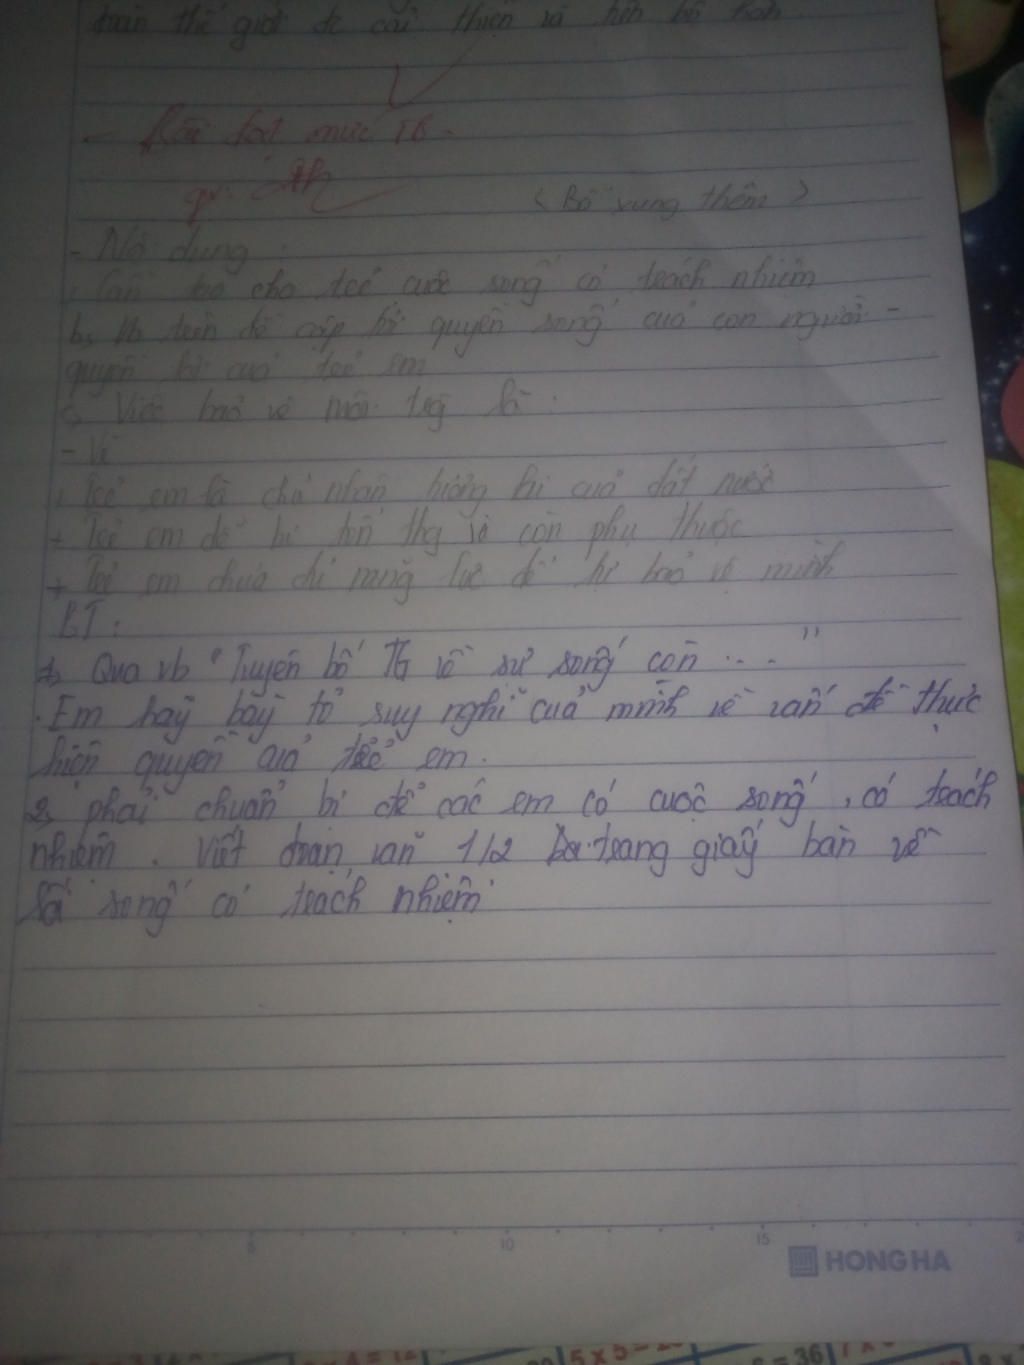 toàn thế giới để cải thiện và tiến bộ hơn
- Bài đạt mức TB -
gv:
< Bổ xung thêm >
- Nội dung :
cho trẻ cuộc sống có trách nhiệm
b, Vb trên đề cập tới quyền sống của con người -
quyền lợi của trẻ em
c, Việc bảo vệ môi trg là :
- Vì
+ Trẻ em là chủ nhân tương lai của đất nước
+ Trẻ em dễ bị tổn thg và còn phụ thuộc
+ Trẻ em chưa đủ năng lực để tự bảo vệ mình
BT :
1, Qua vb " Tuyên bố TG về sự sống còn .... "
. Em hãy bày tỏ suy nghĩ của mình về vấn đề thực
hiện quyền của trẻ em.
2, phải chuẩn bị để các em có cuộc sống , có trách
nhiệm . Viết đoạn văn 1/2 trang giấy bàn về
lối sống có trách nhiệm
5 10 15
HONG HA
5 x 5 = 25
= 36